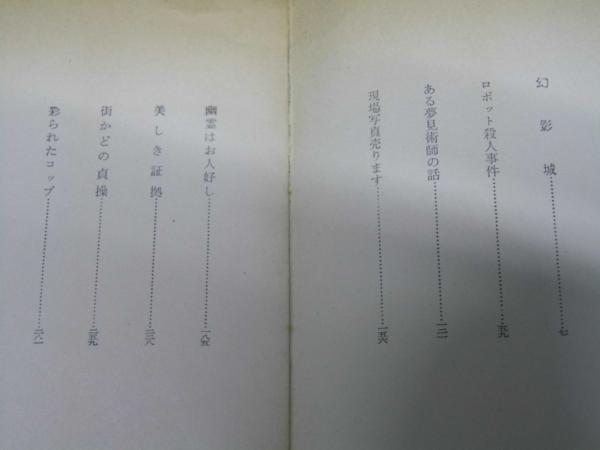 幻影城……七
ロボット殺人事件……五九
ある夢見術師の話……一二一
現場写真売ります……一五六
幽霊はお人好し……一八五
美しき証拠……二三八
街かどの貞操……二五九
彩られたコップ……二六一